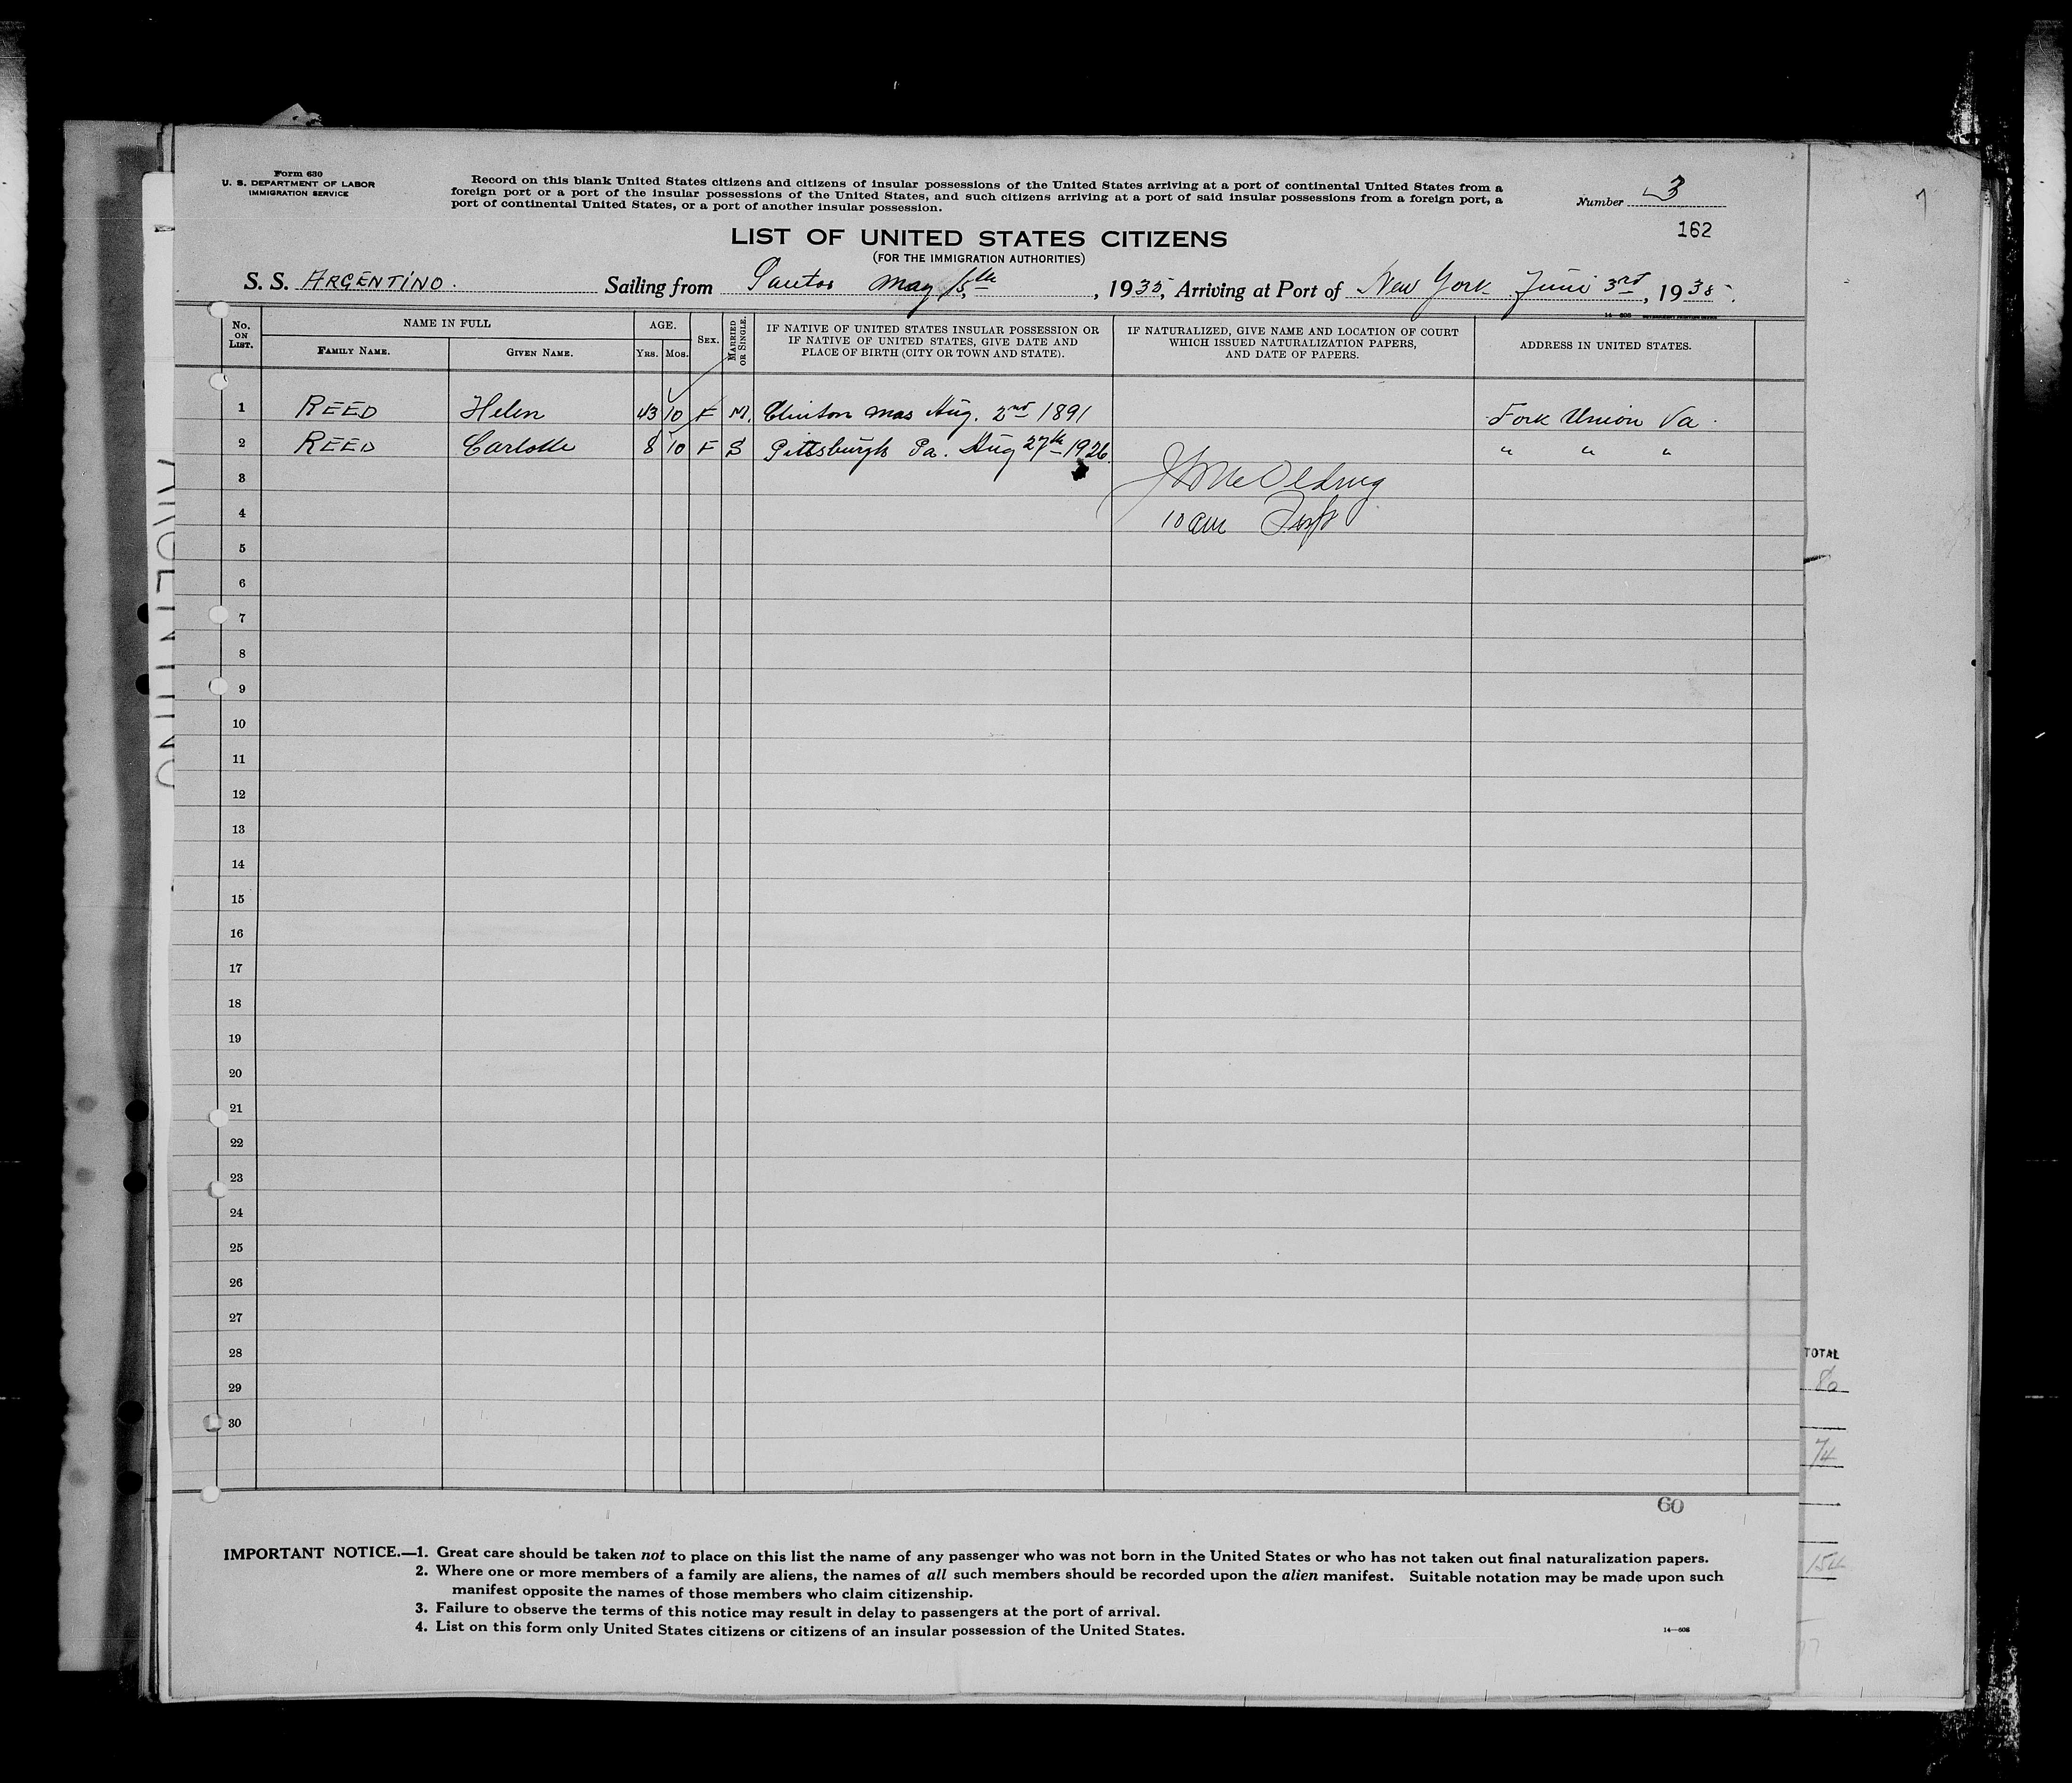 Form 630
U. S. DEPARTMENT OF LABOR
IMMIGRATION SERVICE
Record on this blank United States citizens and citizens of insular possessions of the United States arriving at a port of continental United States from a
foreign port or a port of the insular possessions of the United States, and such citizens arriving at a port of said insular possessions from a foreign port, a
port of continental United States, or a port of another insular possession.
Number 3
162
LIST OF UNITED STATES CITIZENS
(FOR THE IMMIGRATION AUTHORITIES)
S. S. ARGENTINO. Sailing from Santos May 15th, 1935, Arriving at Port of New York June 3rd, 1935.
14—608
No. ON LIST. NAME IN FULL AGE. SEX. MARRIED OR SINGLE. IF NATIVE OF UNITED STATES INSULAR POSSESSION OR IF NATIVE OF UNITED STATES, GIVE DATE AND PLACE OF BIRTH (CITY OR TOWN AND STATE). IF NATURALIZED, GIVE NAME AND LOCATION OF COURT WHICH ISSUED NATURALIZATION PAPERS, AND DATE OF PAPERS. ADDRESS IN UNITED STATES.
FAMILY NAME. GIVEN NAME. YRS. MOS.
1 REED Helen 43 10 F M. Clinton Mas Aug. 2nd 1891 Fork Union Va.
2 REED Carlotte 8 10 F S Pittsburgh Pa. Aug 27th 1926 " " "
3
4 10 am
5
6
7
8
9
10
11
12
13
14
15
16
17
18
19
20
21
22
23
24
25
26
27
28
29
30
TOTAL
80
74
154
60
IMPORTANT NOTICE.—1. Great care should be taken not to place on this list the name of any passenger who was not born in the United States or who has not taken out final naturalization papers.
2. Where one or more members of a family are aliens, the names of all such members should be recorded upon the alien manifest. Suitable notation may be made upon such
manifest opposite the names of those members who claim citizenship.
3. Failure to observe the terms of this notice may result in delay to passengers at the port of arrival.
4. List on this form only United States citizens or citizens of an insular possession of the United States.
14—608